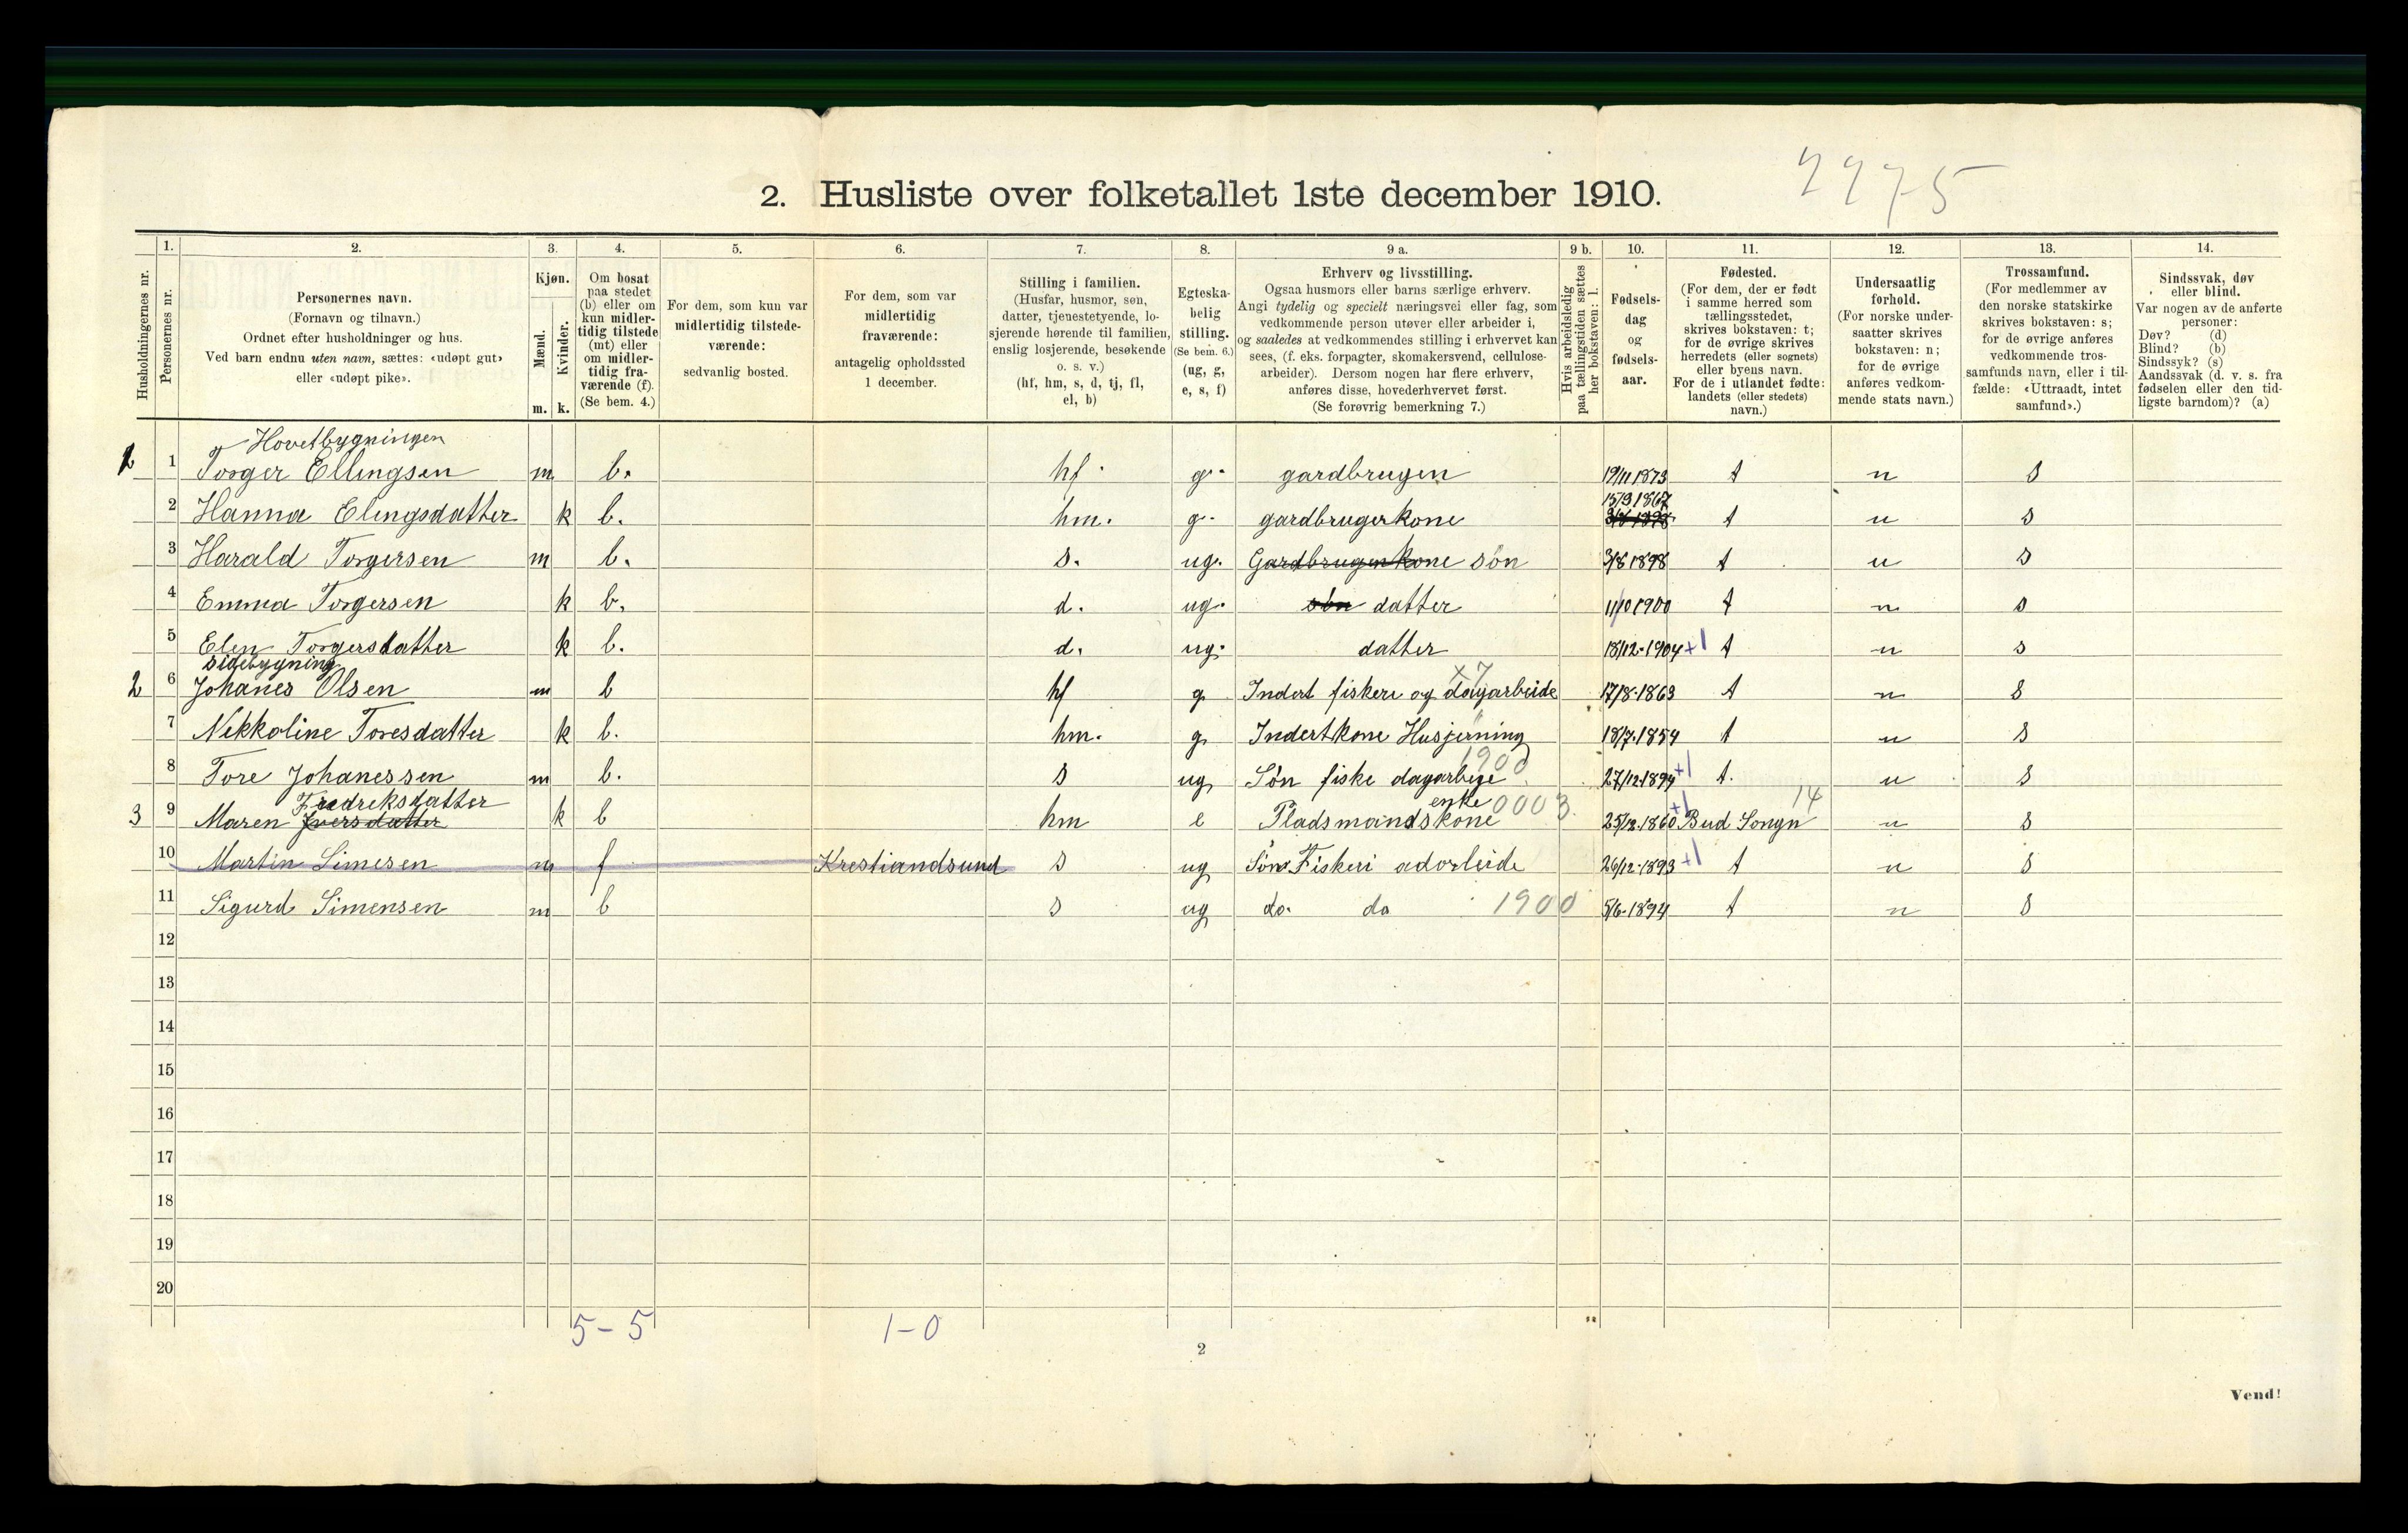 2275
2. Husliste over folketallet 1ste december 1910.
Husholdningernes nr.
1. Personernes nr.
2. Personernes navn. (Fornavn og tilnavn.) Ordnet efter husholdninger og hus. Ved barn endnu uten navn, sættes: «udøpt gut» eller «udøpt pike».
3. Kjøn. Mænd. m. Kvinder. k.
4. Om bosat paa stedet (b) eller om kun midlertidig tilstede (mt) eller om midlertidig fraværende (f). (Se bem. 4.)
5. For dem, som kun var midlertidig tilstedeværende: sedvanlig bosted.
6. For dem, som var midlertidig fraværende: antagelig opholdssted 1 december.
7. Stilling i familien. (Husfar, husmor, søn, datter, tjenestetyende, losjerende hørende til familien, enslig losjerende, besøkende o. s. v.) (hf, hm, s, d, tj, fl, el, b)
8. Egteskabelig stilling. (Se bem. 6.) (ug, g, e, s, f)
9 a. Erhverv og livsstilling. Ogsaa husmors eller barns særlige erhverv. Angi tydelig og specielt næringsvei eller fag, som vedkommende person utøver eller arbeider i, og saaledes at vedkommendes stilling i erhvervet kan sees, (f. eks. forpagter, skomakersvend, cellulosearbeider). Dersom nogen har flere erhverv, anføres disse, hovederhvervet først. (Se forøvrig bemerkning 7.)
9 b. Hvis arbeidsledig paa tællingstiden sættes her bokstaven: l.
10. Fødselsdag og fødselsaar.
11. Fødested. (For dem, der er født i samme herred som tællingsstedet, skrives bokstaven: t; for de øvrige skrives herredets (eller sognets) eller byens navn. For de i utlandet fødte: landets (eller stedets) navn.)
12. Undersaatlig forhold. (For norske undersaatter skrives bokstaven: n; for de øvrige anføres vedkommende stats navn.)
13. Trossamfund. (For medlemmer av den norske statskirke skrives bokstaven: s; for de øvrige anføres vedkommende trossamfunds navn, eller i tilfælde: «Uttraadt, intet samfund».)
14. Sindssvak, døv eller blind. Var nogen av de anførte personer: Døv? (d) Blind? (b) Sindssyk? (s) Aandssvak (d. v. s. fra fødselen eller den tidligste barndom)? (a)
Hovetbygningen
1 1 Torger Ellingsen m b. hf. g. gardbrugen 19/11 1873 t n s
15/9 1867
2 Hanna Elingsdatter k b. hm. g. gardbrugerkone 3/8 1898 t n s
3 Harald Torgersen m b. s. ug. Gardbrugerkone søn 3/8 1898 t n s
4 Emma Torgersen k b. d. ug. søn datter 11/10 1900 t n s
5 Elen Torgersdatter k b. d. ug. datter 18/12-1904 +1 t n s
sidebygning
×7
2 6 Johanes Olsen m b hf g Indert fiskere og dagarbeide 17/8-1863 t n s
7 Nekkoline Toresdatter k b. hm. g Indertkone Husjerning 18/7-1854 t n s
1900
8 Tore Johanessen m b. s ug Søn fiske dagarbeie 27/12-1894 +1 t. n s
Fredreksdatter enke 0003 +1 14
3 9 Maren Iversdatter k b hm e Pladsmandskone 25/12-1860 Bud Songn n s
10 Martin Simesen m f Krestiandsund s ug Søn Fiskeri adorleide 26/12-1893 +1 t n s
11 Sigurd Simensen m b s ug do. do 1900 5/6-1894 t n s
12
13
14
15
16
17
18
19
20
5-5 1-0
2
Vend!